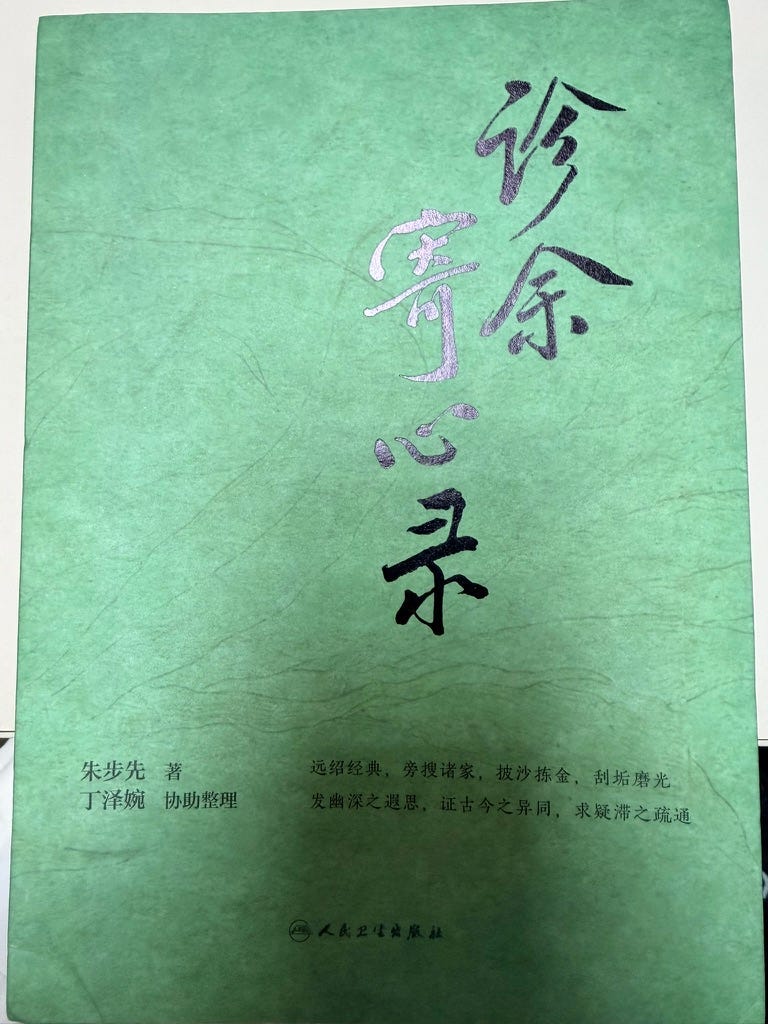 诊余
寄心录
朱步先 著
丁泽婉 协助整理
远绍经典，旁搜诸家，披沙拣金，刮垢磨光
发幽深之遐思，证古今之异同，求疑滞之疏通
人民卫生出版社